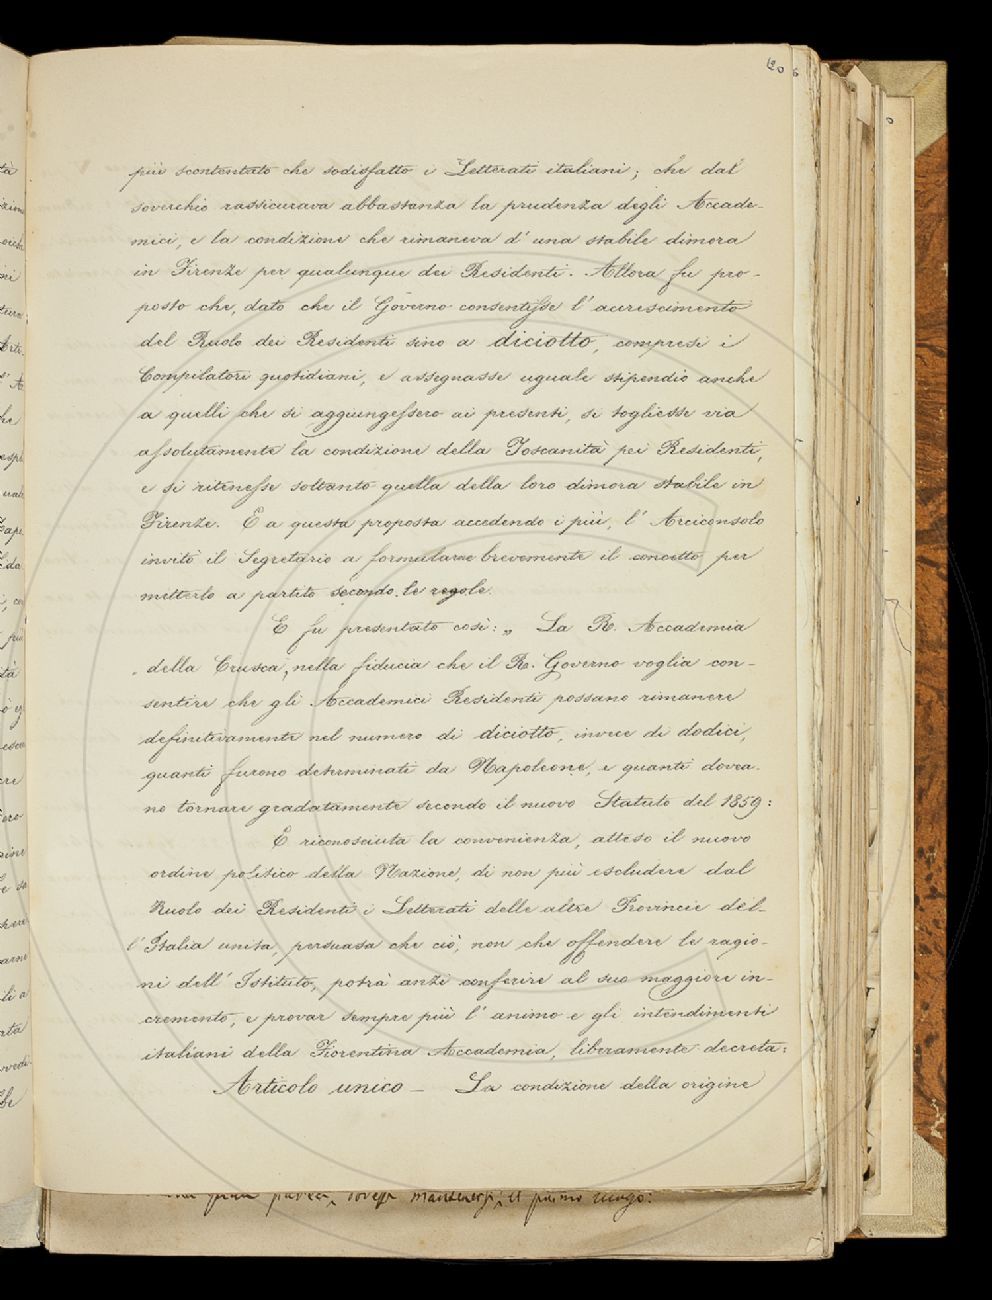 206
più scontentato che sodisfatto i Letterati italiani; che dal
soverchio rassicurava abbastanza la prudenza degli Accade-
mici, e la condizione che rimaneva d'una stabile dimora
in Firenze per qualunque dei Residenti. Allora fu pro-
posto che, dato che il Governo consentisse l'accrescimento
del Ruolo dei Residenti sino a diciotto, compresi i
Compilatori quotidiani, e assegnasse uguale stipendio anche
a quelli che si aggiungessero ai presenti, si togliesse via
assolutamente la condizione della Toscanità pei Residenti,
e si ritenesse soltanto quella della loro dimora stabile in
Firenze. E a questa proposta accedendo i più, l'Arciconsolo
invitò il Segretario a formularne brevemente il concetto per
metterlo a partito secondo le regole.
E fu presentato così: „ La R. Accademia
„ della Crusca, nella fiducia che il R. Governo voglia con-
sentire che gli Accademici Residenti possano rimanere
definitivamente nel numero di diciotto, invece di dodici,
quanti furono determinati da Napoleone, e quanti dovea-
no tornare gradatamente secondo il nuovo Statuto del 1859:
E riconosciuta la convenienza, atteso il nuovo
ordine politico della Nazione, di non più escludere dal
Ruolo dei Residenti i Letterati delle altre Provincie del-
l'Italia unita, persuasa che ciò, non che offendere le ragio-
ni dell'Istituto, potrà anzi conferire al suo maggiore in-
cremento, e provar sempre più l'animo e gli intendimenti
italiani della Fiorentina Accademia, liberamente decreta:
Articolo unico – La condizione della origine
primo luogo: